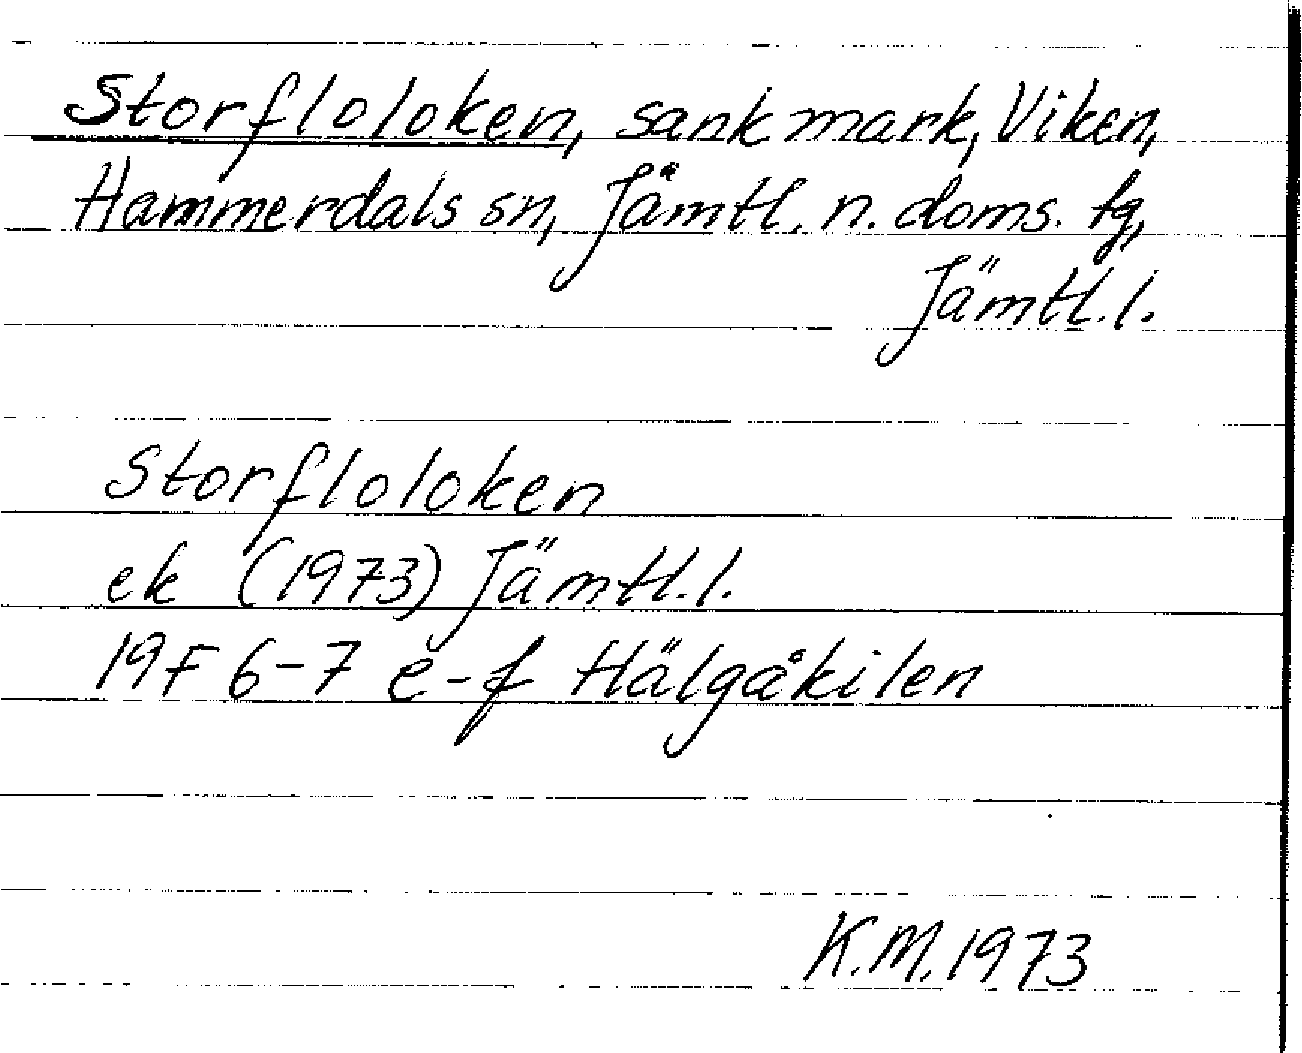 Storfloloken, sank mark, Viken,
Hammerdals sn, Jämtl. n. doms. tg,
Jämtl. l.
Storfloloken
ek (1973) Jämtl. l.
19F 6-7 e-f Hälgåkilen
K.M. 1973